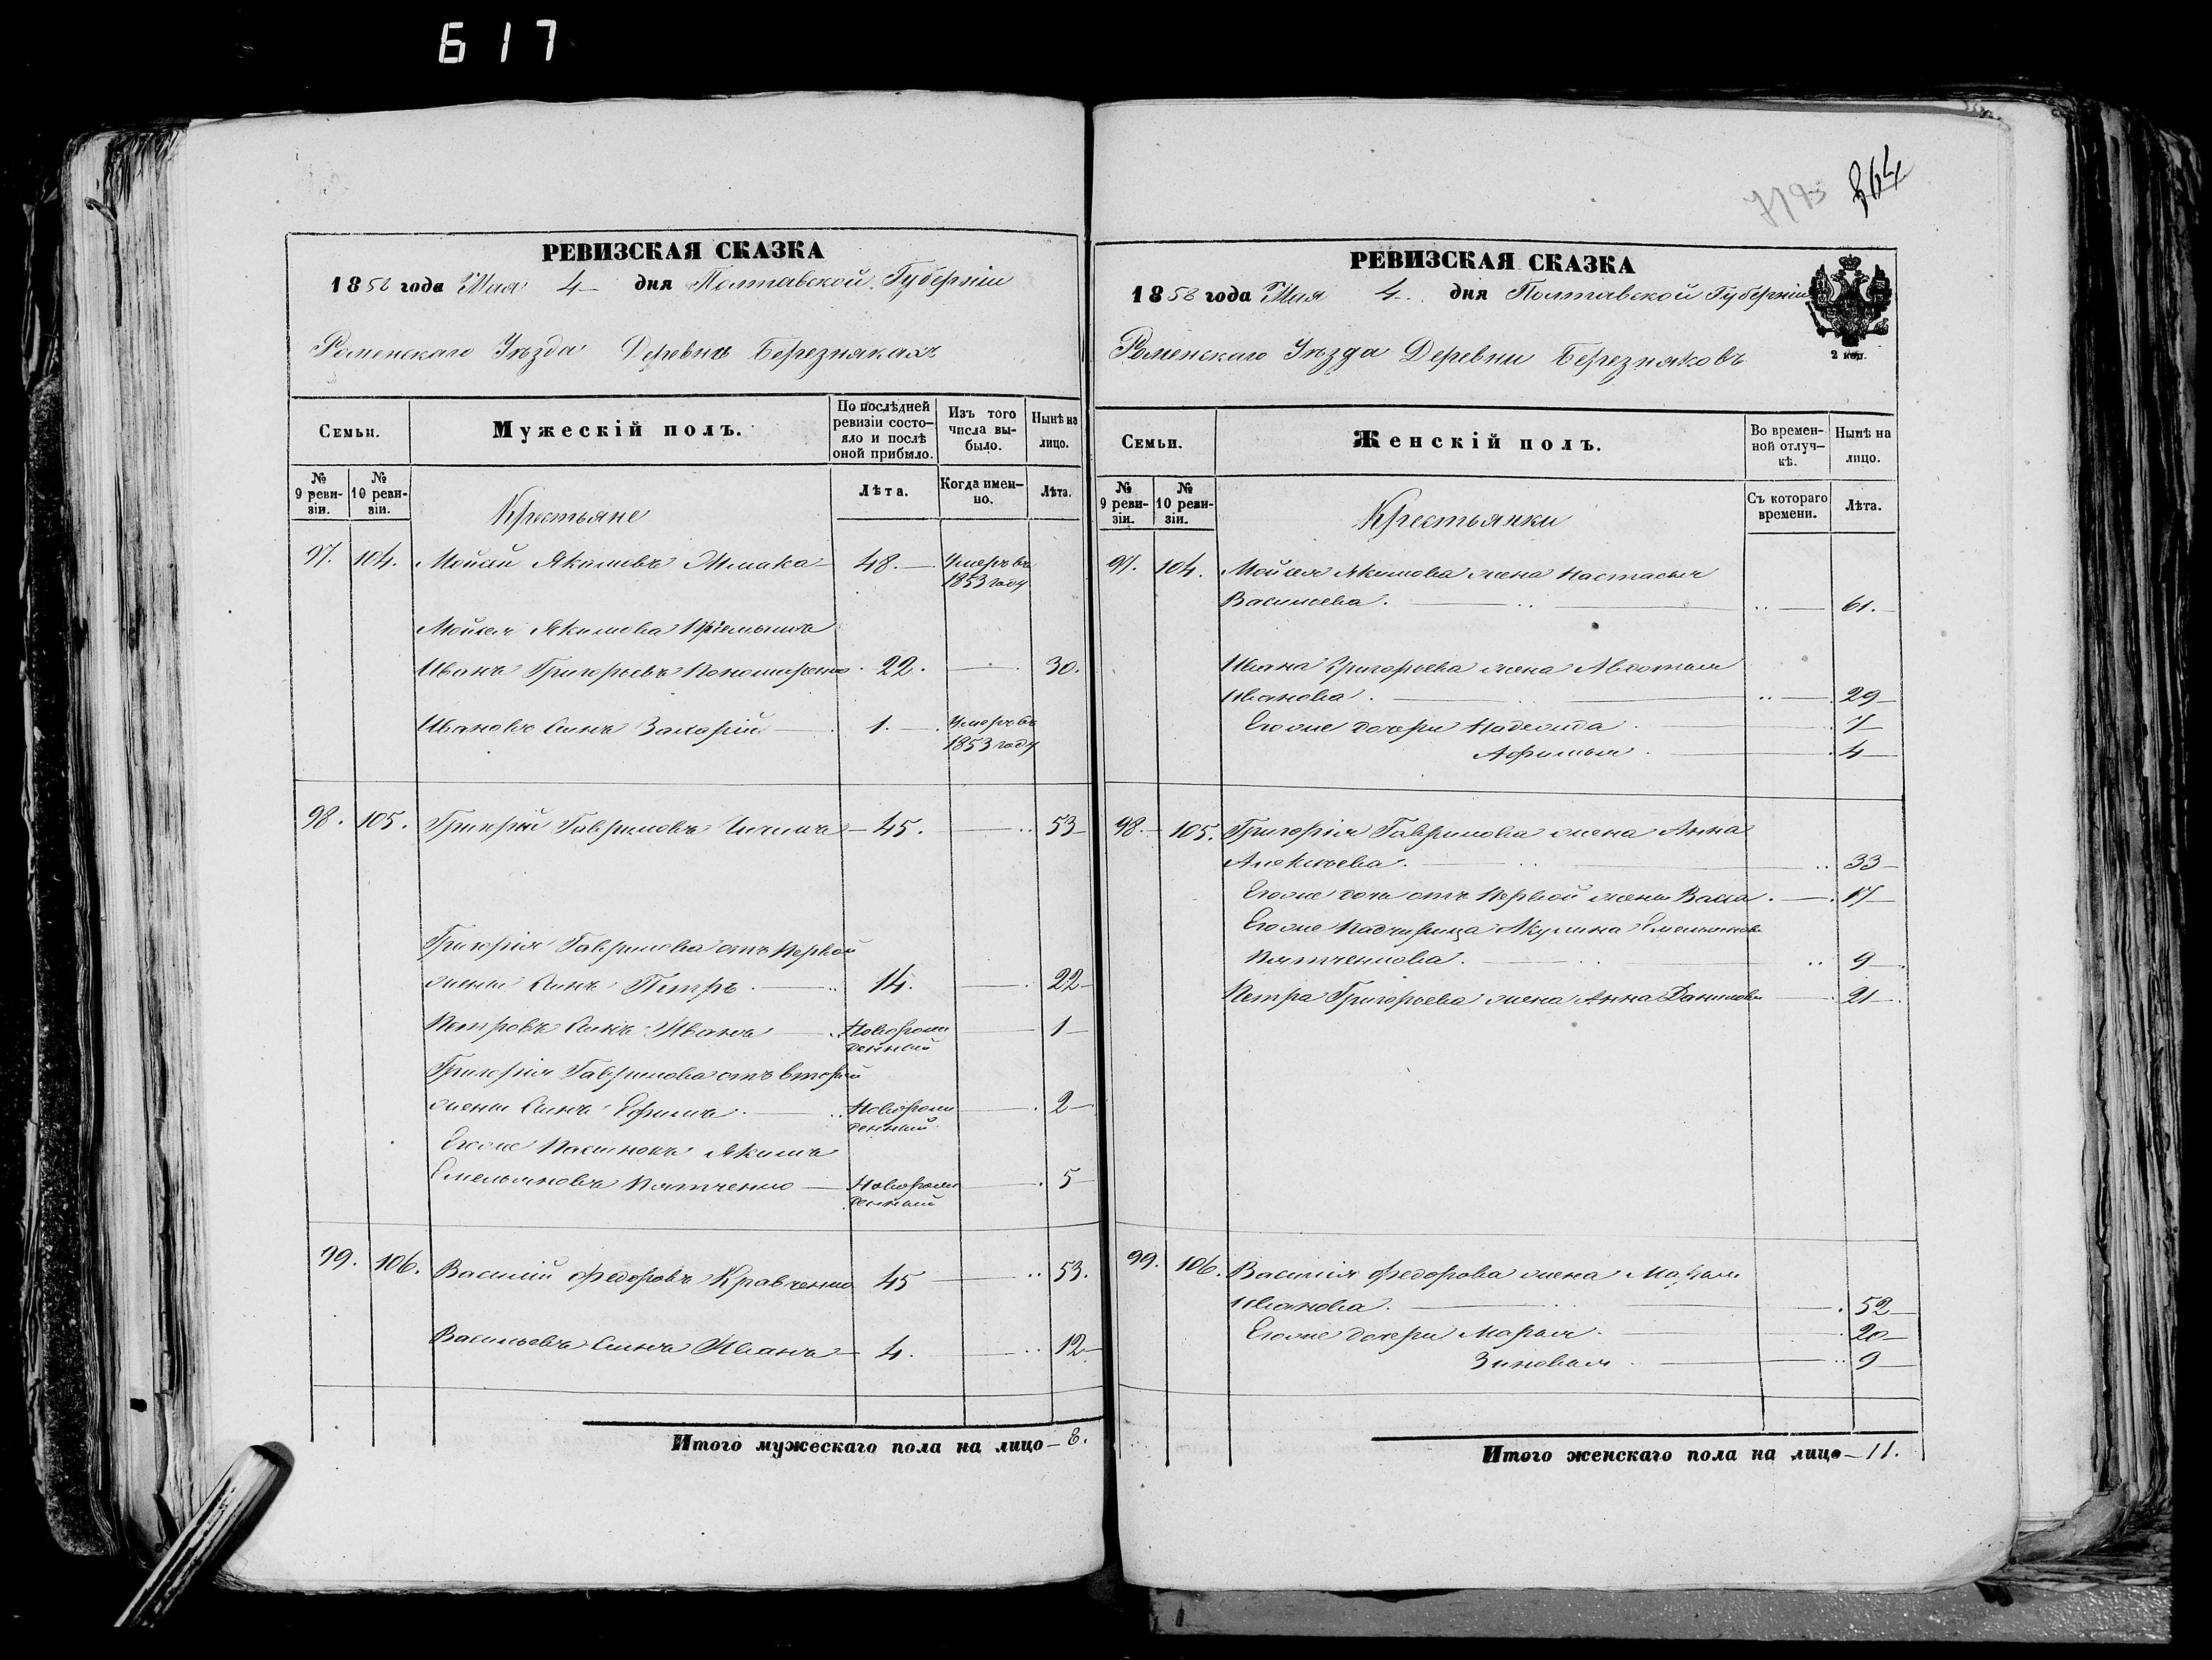 617
7193 364
РЕВИЗСКАЯ СКАЗКА
1858 года Мая 4 дня Полтавской Губерніи
Роменскаго Уѣзда Деревнѣ Березнякахъ
Семьи.
Мужескій полъ.
По послѣдней ревизіи состо-
яло и послѣ
оной прибыло.
Изъ того
числа вы-
было.
Нынѣ на
лицо.
№
9 реви-
зіи.
№
10 реви-
зіи.
Крестьяне
Лѣта.
Когда имен-
но.
Лѣта.
97. 104. Мойсей Якимовъ 48. Умеръ въ
1853 году
Мойсея Якимова Пріемышъ
Иванъ Григорьевъ Пономаренко 22. 30.
Ивановъ Сынъ Захарій 1. Умеръ въ
1853 году
98. 105. Григорій Гавриловъ 45. 53
Григорія Гаврилова отъ Первой
жены Сынъ Петръ 14. 22
Петровъ Сынъ Иванъ Новорож
денный 1
Григорія Гаврилова отъ второй
жены Сынъ Ефимъ Новорож
денный 2
Егоже Пасынокъ Якимъ
Емельяновъ Пятченко Новорож
денный 5
99. 106. Василій Федоровъ Кравченко 45 53.
Васильевъ Сынъ Иванъ 4. 12
Итого мужескаго пола на лицо 8.
РЕВИЗСКАЯ СКАЗКА
1858 года Мая 4 дня Полтавской Губерніи
2 коп.
Роменскаго Уѣзда Деревни Березняковъ
Семьи.
Женскій полъ.
Во времен-
ной отлуч-
кѣ.
Нынѣ на
лицо.
№
9 реви-
зіи.
№
10 реви-
зіи.
Крестьянки
Съ котораго
времени.
Лѣта.
97. 104. Мойсея Якимова жена Настасья
Васильева. 61.
Ивана Григорьева жена Авдотья
Иванова. 29
Егоже дочери Надежда 7
Афимья 4
98. 105. Григорія Гаврилова жена Анна
Алексѣева. 33
Егоже дочь отъ Первой жены Васса. 17
Егоже Падчерица Акулина Емельянова
Пятченкова. 9
Петра Григорьева жена Анна Данилова 21
99. 106. Василія Федорова жена
Иванова. 52
Егоже дочери Марья 20
Зиновья 9
Итого женскаго пола на лицо 11.